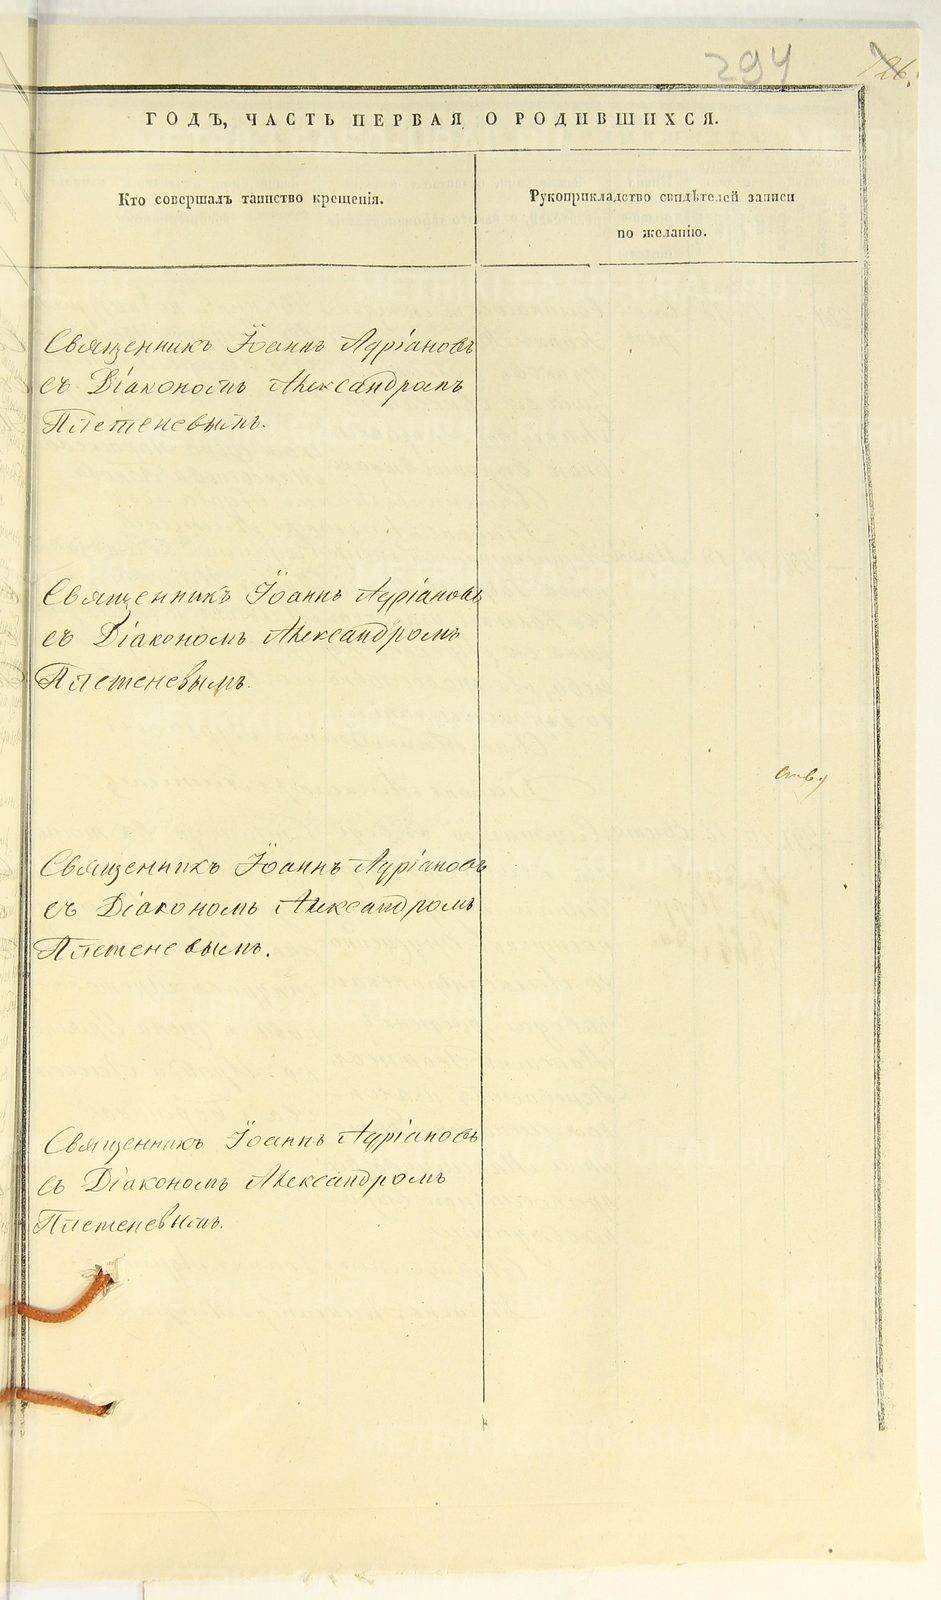 294
126.
ГОДЪ, ЧАСТЬ ПЕРВАЯ О РОДИВШИХСЯ.
Кто совершалъ таинство крещенія.
Рукоприкладство свидѣтелей записи
по желанію.
Священникъ Іоаннъ Адріановъ
съ Діакономъ Александромъ
Плетеневымъ.
Священникъ Іоаннъ Адріановъ
съ Діакономъ Александромъ
Плетеневымъ.
Священникъ Іоаннъ Адріановъ
съ Діакономъ Александромъ
Плетеневымъ.
Священникъ Іоаннъ Адріановъ
съ Діакономъ Александромъ
Плетеневымъ.
METRIKI.GASO-URAL.RU